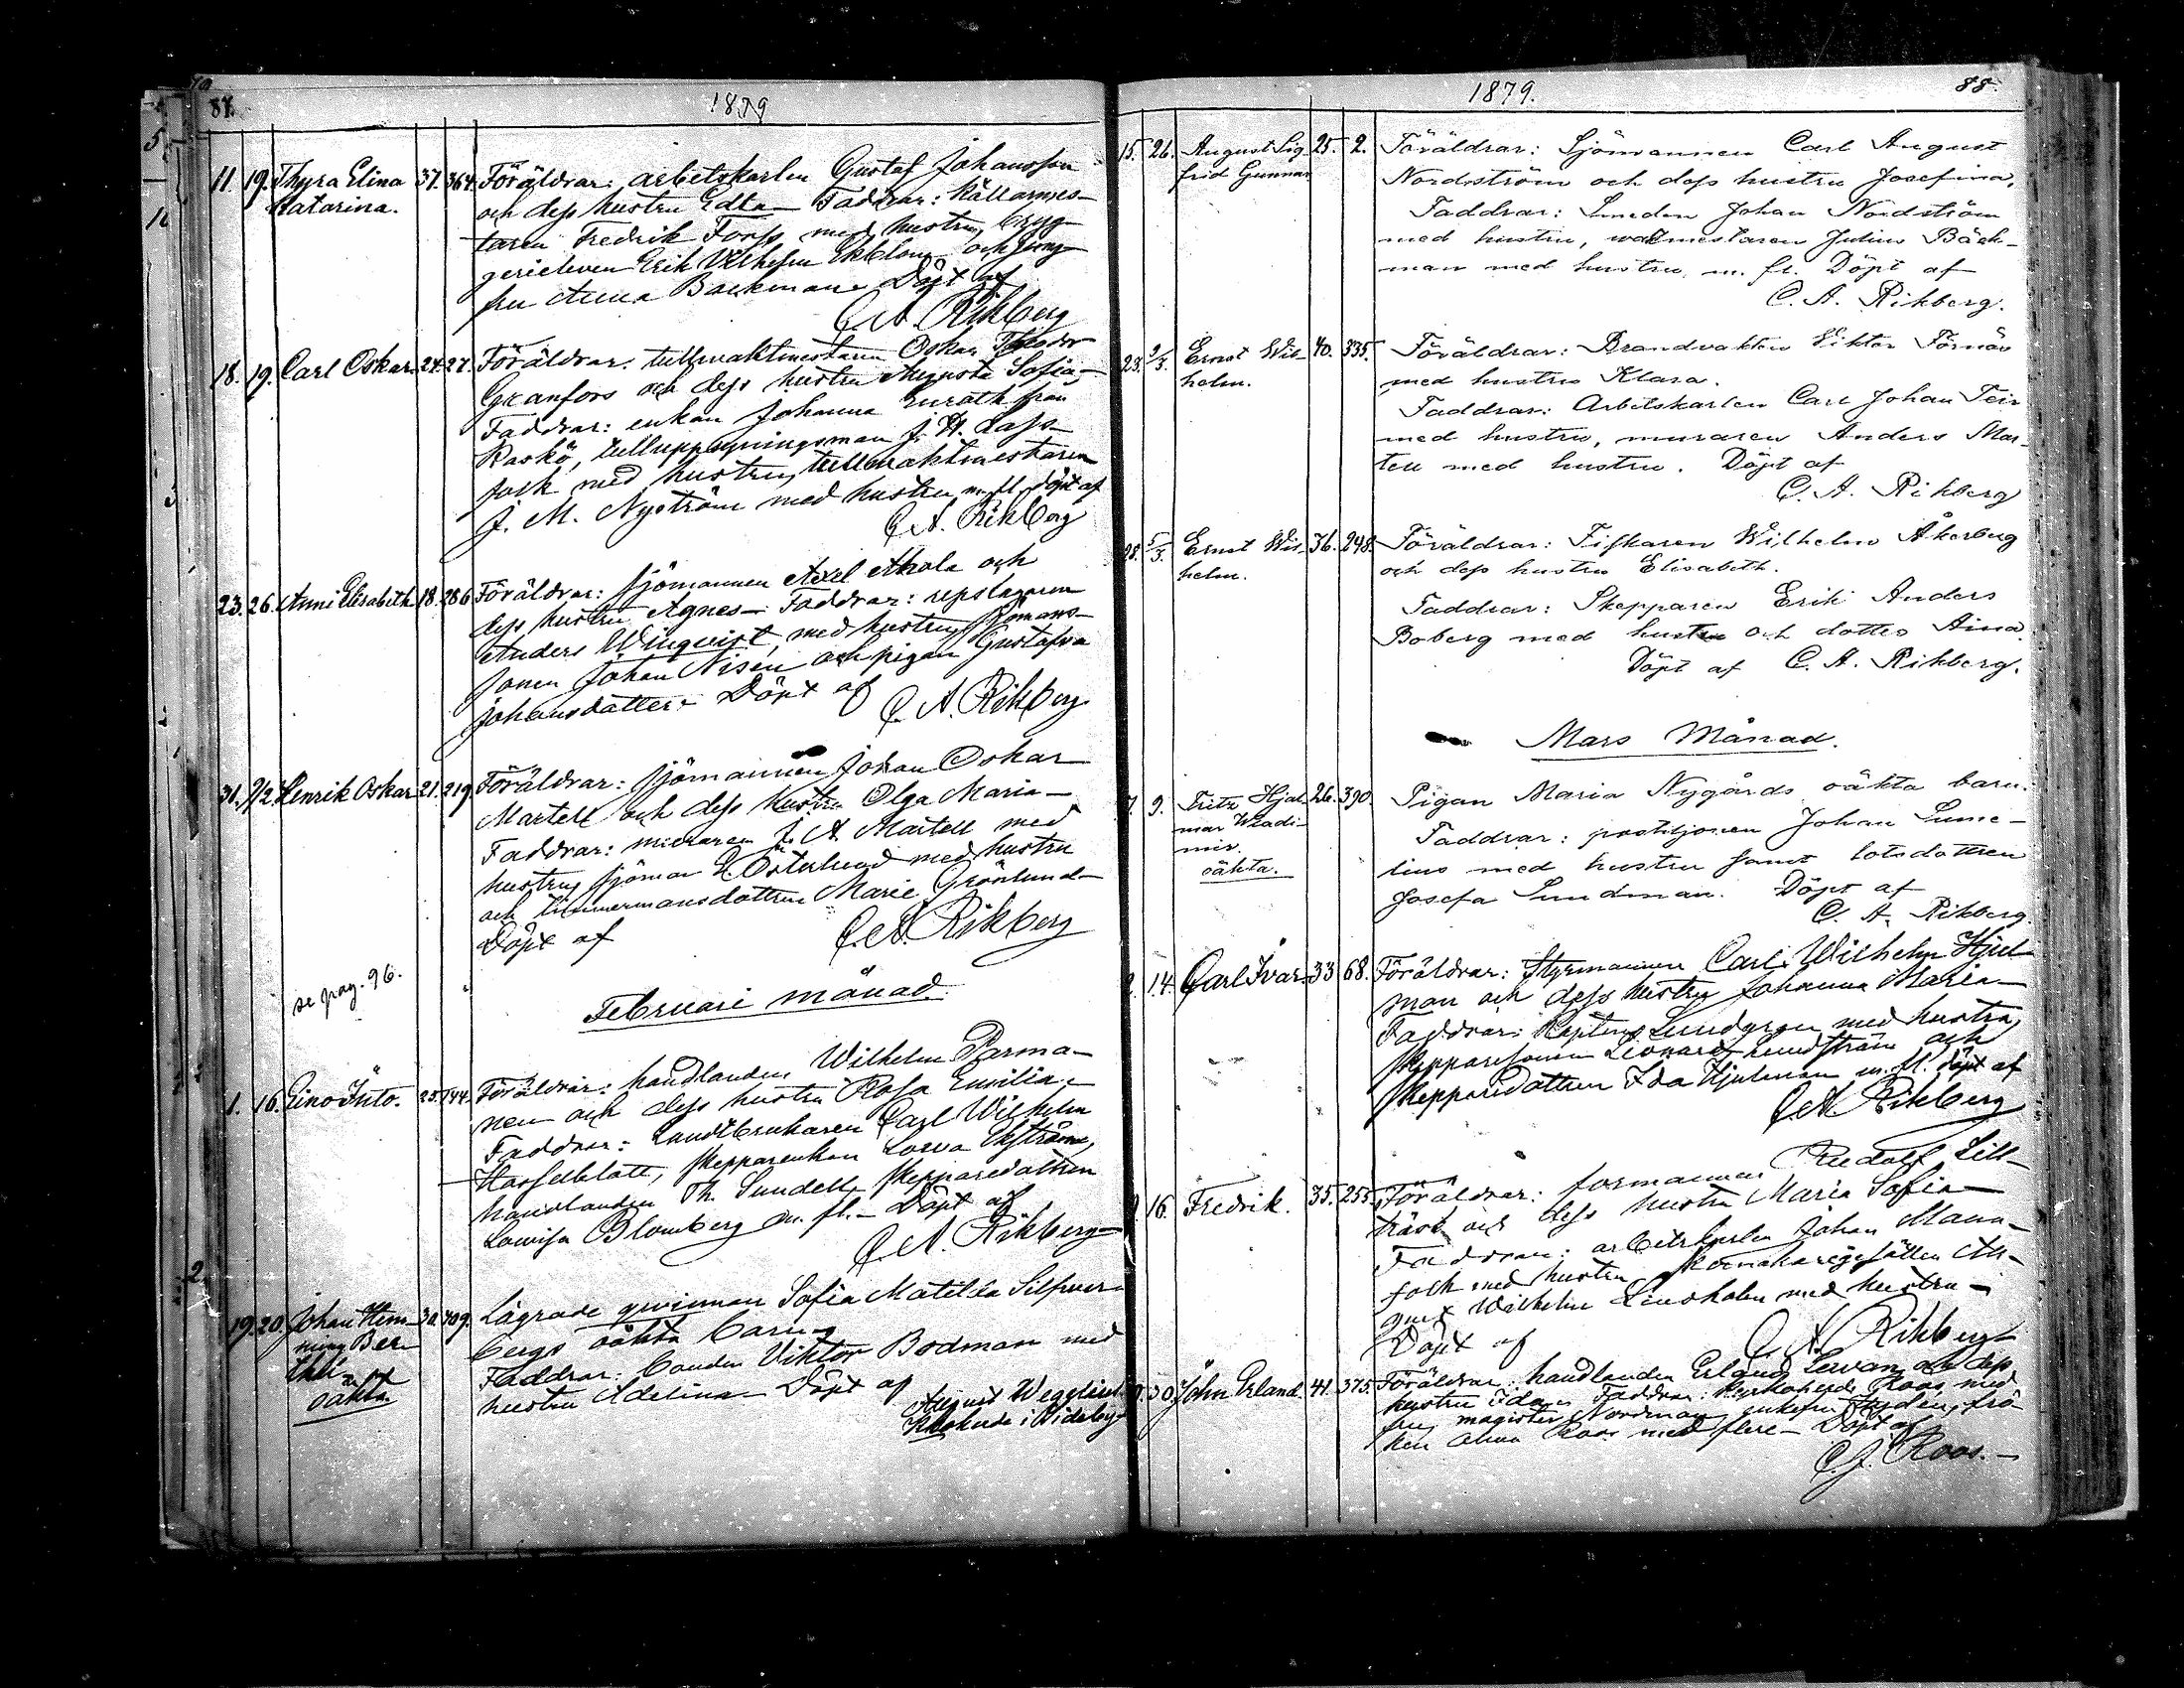 87.
1879
11. 19. Thyra Elina 37. 364. Föräldrar: arbetskarlen Gustaf Johansson
Katarina. och dess hustru Edla — Faddrar: källarmes-
taren Fredrik Forss med hustru, bryg-
gerieleven Erik Vilhelm Ekblom och jung-
fru Anna Backman. Döpt af
C. A. Rikberg
18. 19. Carl Oskar 24. 27. Föräldrar: tullvaktmestaren Oskar Theodor
Granfors och dess hustru Augusta Sofia,—
Faddrar: enkan Johanna från
Raskö, tulluppsyningsman J. H. Lass-
folk med hustru, tullvaktmestaren
J. M. Nyström med hustru m. fl. döpt af
C. A. Rikberg
23. 26. Anni Elisabeth 18. 286 Föräldrar: sjömannen Axel och
dess hustru Agnes — Faddrar: repslagaren
Anders Winquist, med hustru, sjömans-
sonen Johan Nisén och pigan Gustafva
Johansdotter. Döpt af
C. A. Rikberg.
31. 9/2 Henrik Oskar 21. 219. Föräldrar: sjömannen Johan Oskar
Martell och dess hustru Olga Maria —
Faddrar: muraren J. A. Martell med
hustru, sjöman E. Österlund med hustru
och timmermansdottren Marie Grönlund —
Döpt af C. A. Rikberg
se pag. 96.
Februari månad.
1. 16. Eino Into. 25. 144. Föräldrar: handlanden Wilhelm Parma-
nen och dess hustru Rosa Emilia —
Faddrar: Landtbrukaren Carl Wilhelm
Hasselblatt, skepparenkan Lovisa Ekström,
handlanden Th. Sundell, skepparedottren
Lovisa Blomberg m. fl. — Döpt af
C. A. Rikberg —
19. 20. Johan Hem- 30. 309. Lägrade qvinnan Sofia Matilda Silfver-
ming Ber- bergs oäkta barn —
thel Faddrar: bonden Viktor Bodman med
oäkta. hustru Adelina — Döpt af
August Wegelius
Khkde i Wideby
1879.
88.
15. 26. August Sig- 25. 2. Föräldrar: Sjömannen Carl August
frid Gunnar Nordström och dess hustru Josefina.
Faddrar: Smeden Johan Nordström
med hustru, waktmestaren Julius Bäck-
man med hustru m. fl. Döpt af
C. A. Rikberg.
23. 2/3. Ernst Wil- 40. 335. Föräldrar: Brandvakten Viktor Törnäv
helm. med hustru Klara.
Faddrar: Arbetskarlen Carl Johan Teir
med hustru, muraren Anders Mar-
tell med hustru. Döpt af
C. A. Rikberg
28. 5/3. Ernst Wil- 36. 248. Föräldrar: Fiskaren Wilhelm Åkerberg
helm. och dess hustru Elisabeth.
Faddrar: Skepparen Erik Anders
Boberg med hustru och dotter Aina.
Döpt af C. A. Rikberg.
Mars Månad.
7. 9. Fritz Hjal- 26. 390. Pigan Maria Nygårds oäkta barn.
mar Wladi- Faddrar: postiljonen Johan Sume-
mir. lius med hustru samt lotsdottren
oäkta. Josefa Sundman. Döpt af
C. A. Rikberg.
2. 14. Carl Ivar 33 68. Föräldrar: Styrmannen Carl Wilhelm Hjul-
man och dess hustru Johanna Maria —
Faddrar: Kapten Lundgren med hustru,
Skepparesonen Leonard Lundström och
Skepparedottren Ida Hjulman m. fl. döpt af
C. A. Rikberg
16. Fredrik. 35. 255. Föräldrar: formannen Rudolf Lill-
träsk och dess hustru Maria Sofia —
Faddrar: arbetskarlen Johan Mann-
folk med hustru, skomakaregesällen Au-
gust Wilhelm Lindholm med hustru —
Döpt af C. A. Rikberg —
30. John Erland. 41. 375. Föräldrar: handlanden Erland Lervan och dess
hustru Ida — Faddrar: Kyrkoherde Roos med
fru, magister Nordman, enkefru Rydén, frö-
ken Alma Roos med flere — Döpt af
C. J. Roos. —